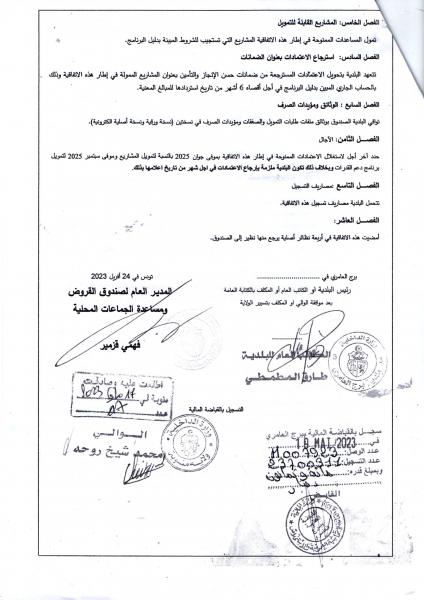 الفصل الخامس: المشاريع القابلة للتمويل
تمول المساعدات الممنوحة في إطار هذه الاتفاقية المشاريع التي تستجيب للشروط المبينة بدليل البرنامج.
الفصل السادس: استرجاع الاعتمادات بعنوان الضمانات
تتعهد البلدية بتحويل الاعتمادات المسترجعة من ضمانات حسن الإنجاز والتأمين بعنوان المشاريع الممولة في إطار هذه الاتفاقية وذلك
بالحساب الجاري المبين بدليل البرنامج في أجل أقصاه 6 أشهر من تاريخ استردادها للمبالغ المعنية.
الفصل السابع: الوثائق ومؤيدات الصرف
توافي البلدية الصندوق بوثائق ملفات طلبات التمويل والصفقات ومؤيدات الصرف في نسختين (نسخة ورقية ونسخة أصلية الكترونية).
الفصــل الثامن: الآجال
حدد آخر أجل لاستغلال الاعتمادات الممنوحة في إطار هذه الاتفاقية بموفى جوان 2025 بالنسبة لتمويل المشاريع وموفى سبتمبر 2025 لتمويل
برنامج دعم القدرات وبخلاف ذلك تكون البلدية ملزمة بإرجاع الاعتمادات في اجل شهر من تاريخ اعلامها بذلك.
الفصــل التاسع: مصاريف التسجيل
تتحمل البلدية مصاريف تسجيل هذه الاتفاقية.
الفصــل العاشر:
أمضيت هذه الاتفاقية في أربعة نظائر أصلية يرجع منها نظير إلى الصندوق.
برج العامري في ........................
تونس في 24 أفريل 2023
رئيس البلدية او الكاتب العام أو المكلف بالكتابة العامة
بعد موافقة الوالي او المكلف بتسيير الولاية
المدير العام لصندوق القروض
ومساعدة الجماعات المحلية
فهمي قزمير
الكاتب العام للبلدية
طارق المطمطي
اطلعت عليه وصادقت
منوبة في 17 ماي 2023
عدد
الــوالــي
محمد شيخ روحه
التسجيل بالقباضة المالية
سجل بالقباضة المالية ببرج العامري
في 18 MAI 2023
عدد الوصل:
عدد التسجيل:
وبمبلغ قدره:
القابض